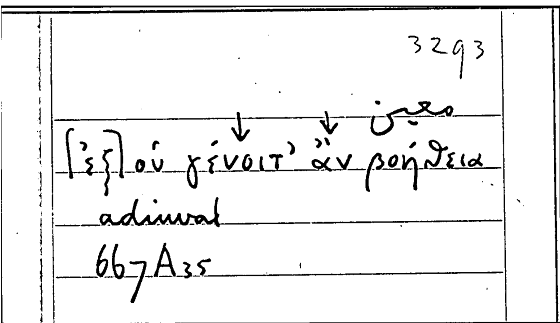 3293
معين
↓ ↓
[ἐξ] οὗ γένοιτ' ἂν βοήθεια
adiuvat
667A35